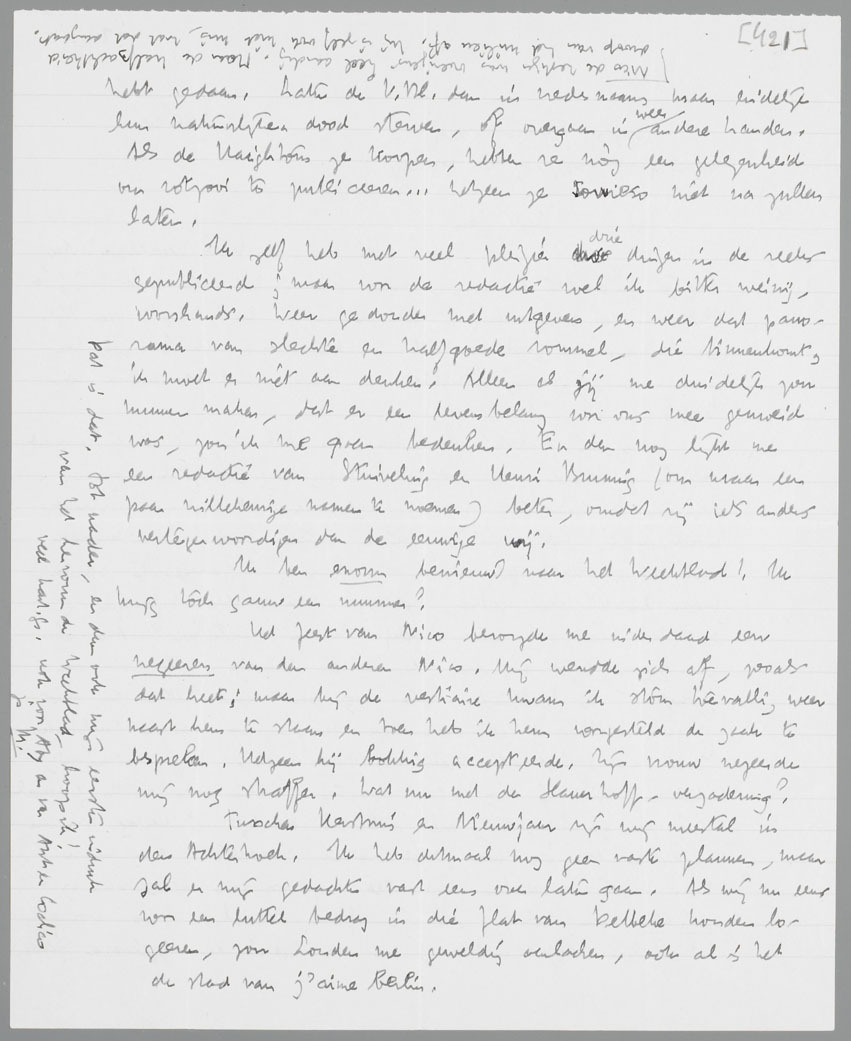 [421]
[Nico de
hebt gedaan. Laten de V.Bl. dan in vredesnaam maar eindelijk
hun natuurlijken dood sterven, of overgaan in weer andere handen.
Als de Naeghtons ze koopen, hebben ze nòg een gelegenheid
om rotzooi te publiceeren... hetgeen ze sowieso niet na zullen
laten.
Ik zelf heb met veel pleizier drie dingen in de reeks
gepubliceerd; maar voor de redactie voel ik bitter weinig,
voorshands. Weer gedonder met uitgevers, en weer dat pano-
rama van slechte en halfgoede rommel, die binnenkomt,
ik moet er niet aan denken! Alleen als jij me duidelijk zou
kunnen maken, dat er een levensbelang voor ons mee gemoeid
was, zou ik me gaan bedenken. En dan nog lijkt me
een redactie van Stuiveling en Henri Bruning (om maar een
paar willekeurige namen te noemen) beter, omdat zij iets anders
vertegenwoordigen dan de eeuwige wij.
Ik ben enorm benieuwd naar het weekblad! Ik
krijg tòch gauw een nummer?
Het feest van Nico bezorgde me inderdaad een
negeeren van den anderen Nico. Hij wendde zich af, zooals
dat heet; maar bij de vestiaire kwam ik stom toevallig weer
naast hem te staan en toen heb ik hem voorgesteld de zaak te
bespreken. Hetgeen hij bokkig accepteerde. Zijn vrouw negeerde
mij nog straffer. Wat nu met de Slauerhoff-vergadering?
Tusschen Kerstmis en Nieuwjaar zijn wij meestal in
den Achterhoek. Ik heb ditmaal nog geen vaste plannen, maar
zal er mijn gedachte vast eens over laten gaan. Als wij nu eens
voor een luttel bedrag in die flat van Kelleke konden lo-
geeren, zou Londen me geweldig aanlachen, ook al is het
de stad van j'aime Berlin.
Dat is dat. Tot nader, en dan ook mijn eerste indruk
van het komende weekblad, hoop ik!
Veel hartelijks, ook voor Atty en van Ant en bodies
je M.